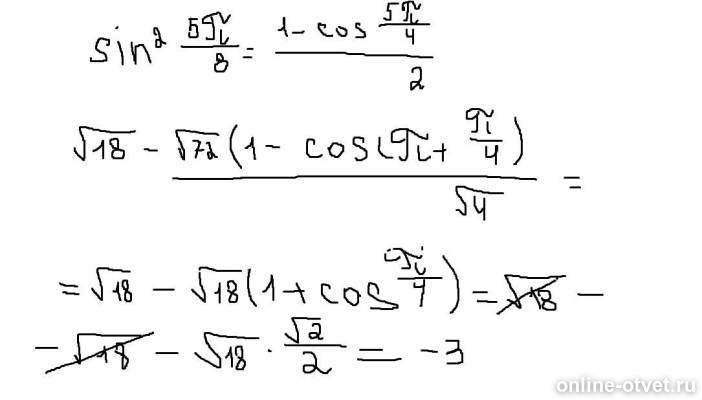 sin² 5π/8 = (1 - cos 5π/4)/2
√18 - √72(1 - cos(π + π/4)/√4 =
= √18 - √18(1 + cos π/4) = √18 -
- √18 - √18 · √2/2 = -3
online-otvet.ru